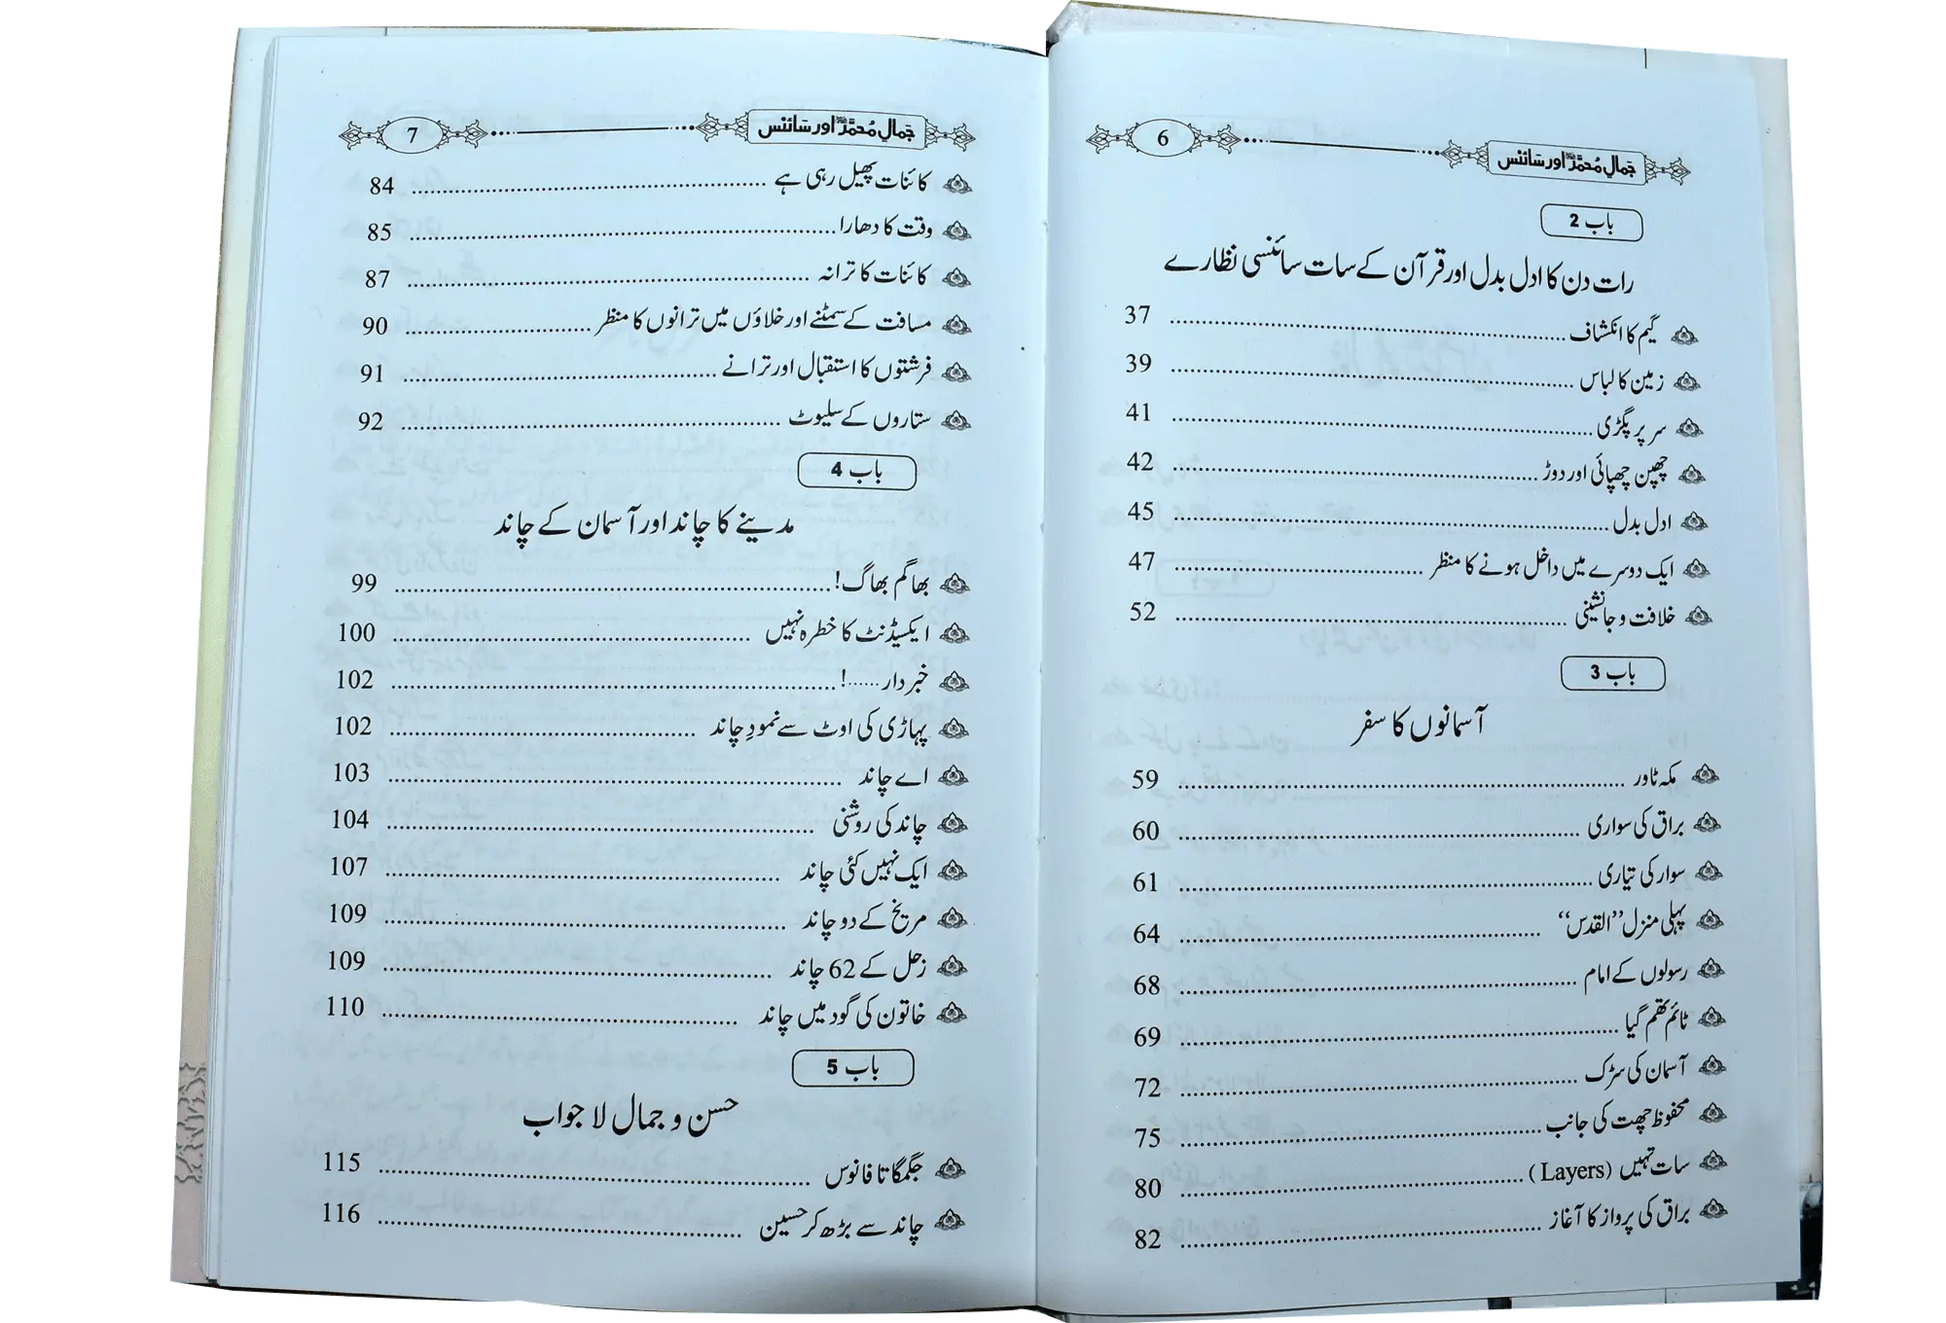 جمالِ مُحمَّدﷺ اور سَائنس 6
باب 2
رات دن کا ادل بدل اور قرآن کے سات سائنسی نظارے
گیم کا انکشاف .......... 37
زمین کا لباس .......... 39
سر پر پگڑی .......... 41
چھپن چھپائی اور دوڑ .......... 42
ادل بدل .......... 45
ایک دوسرے میں داخل ہونے کا منظر .......... 47
خلافت و جانشینی .......... 52
باب 3
آسمانوں کا سفر
مکہ ٹاور .......... 59
براق کی سواری .......... 60
سوار کی تیاری .......... 61
پہلی منزل ’’القدس‘‘ .......... 64
رسولوں کے امام .......... 68
ٹائم تھم گیا .......... 69
آسمان کی سڑک .......... 72
محفوظ چھت کی جانب .......... 75
سات تہیں (Layers) .......... 80
براق کی پرواز کا آغاز .......... 82
جمالِ مُحمَّدﷺ اور سَائنس 7
کائنات پھیل رہی ہے .......... 84
وقت کا دھارا .......... 85
کائنات کا ترانہ .......... 87
مسافت کے سمٹنے اور خلاؤں میں ترانوں کا منظر .......... 90
فرشتوں کا استقبال اور ترانے .......... 91
ستاروں کے سلیوٹ .......... 92
باب 4
مدینے کا چاند اور آسمان کے چاند
بھاگم بھاگ! .......... 99
ایکسیڈنٹ کا خطرہ نہیں .......... 100
خبردار......! .......... 102
پہاڑی کی اوٹ سے نمودِ چاند .......... 102
اے چاند .......... 103
چاند کی روشنی .......... 104
ایک نہیں کئی چاند .......... 107
مریخ کے دو چاند .......... 109
زحل کے 62 چاند .......... 109
خاتون کی گود میں چاند .......... 110
باب 5
حسن و جمال لا جواب
جگمگاتا فانوس .......... 115
چاند سے بڑھ کر حسین .......... 116